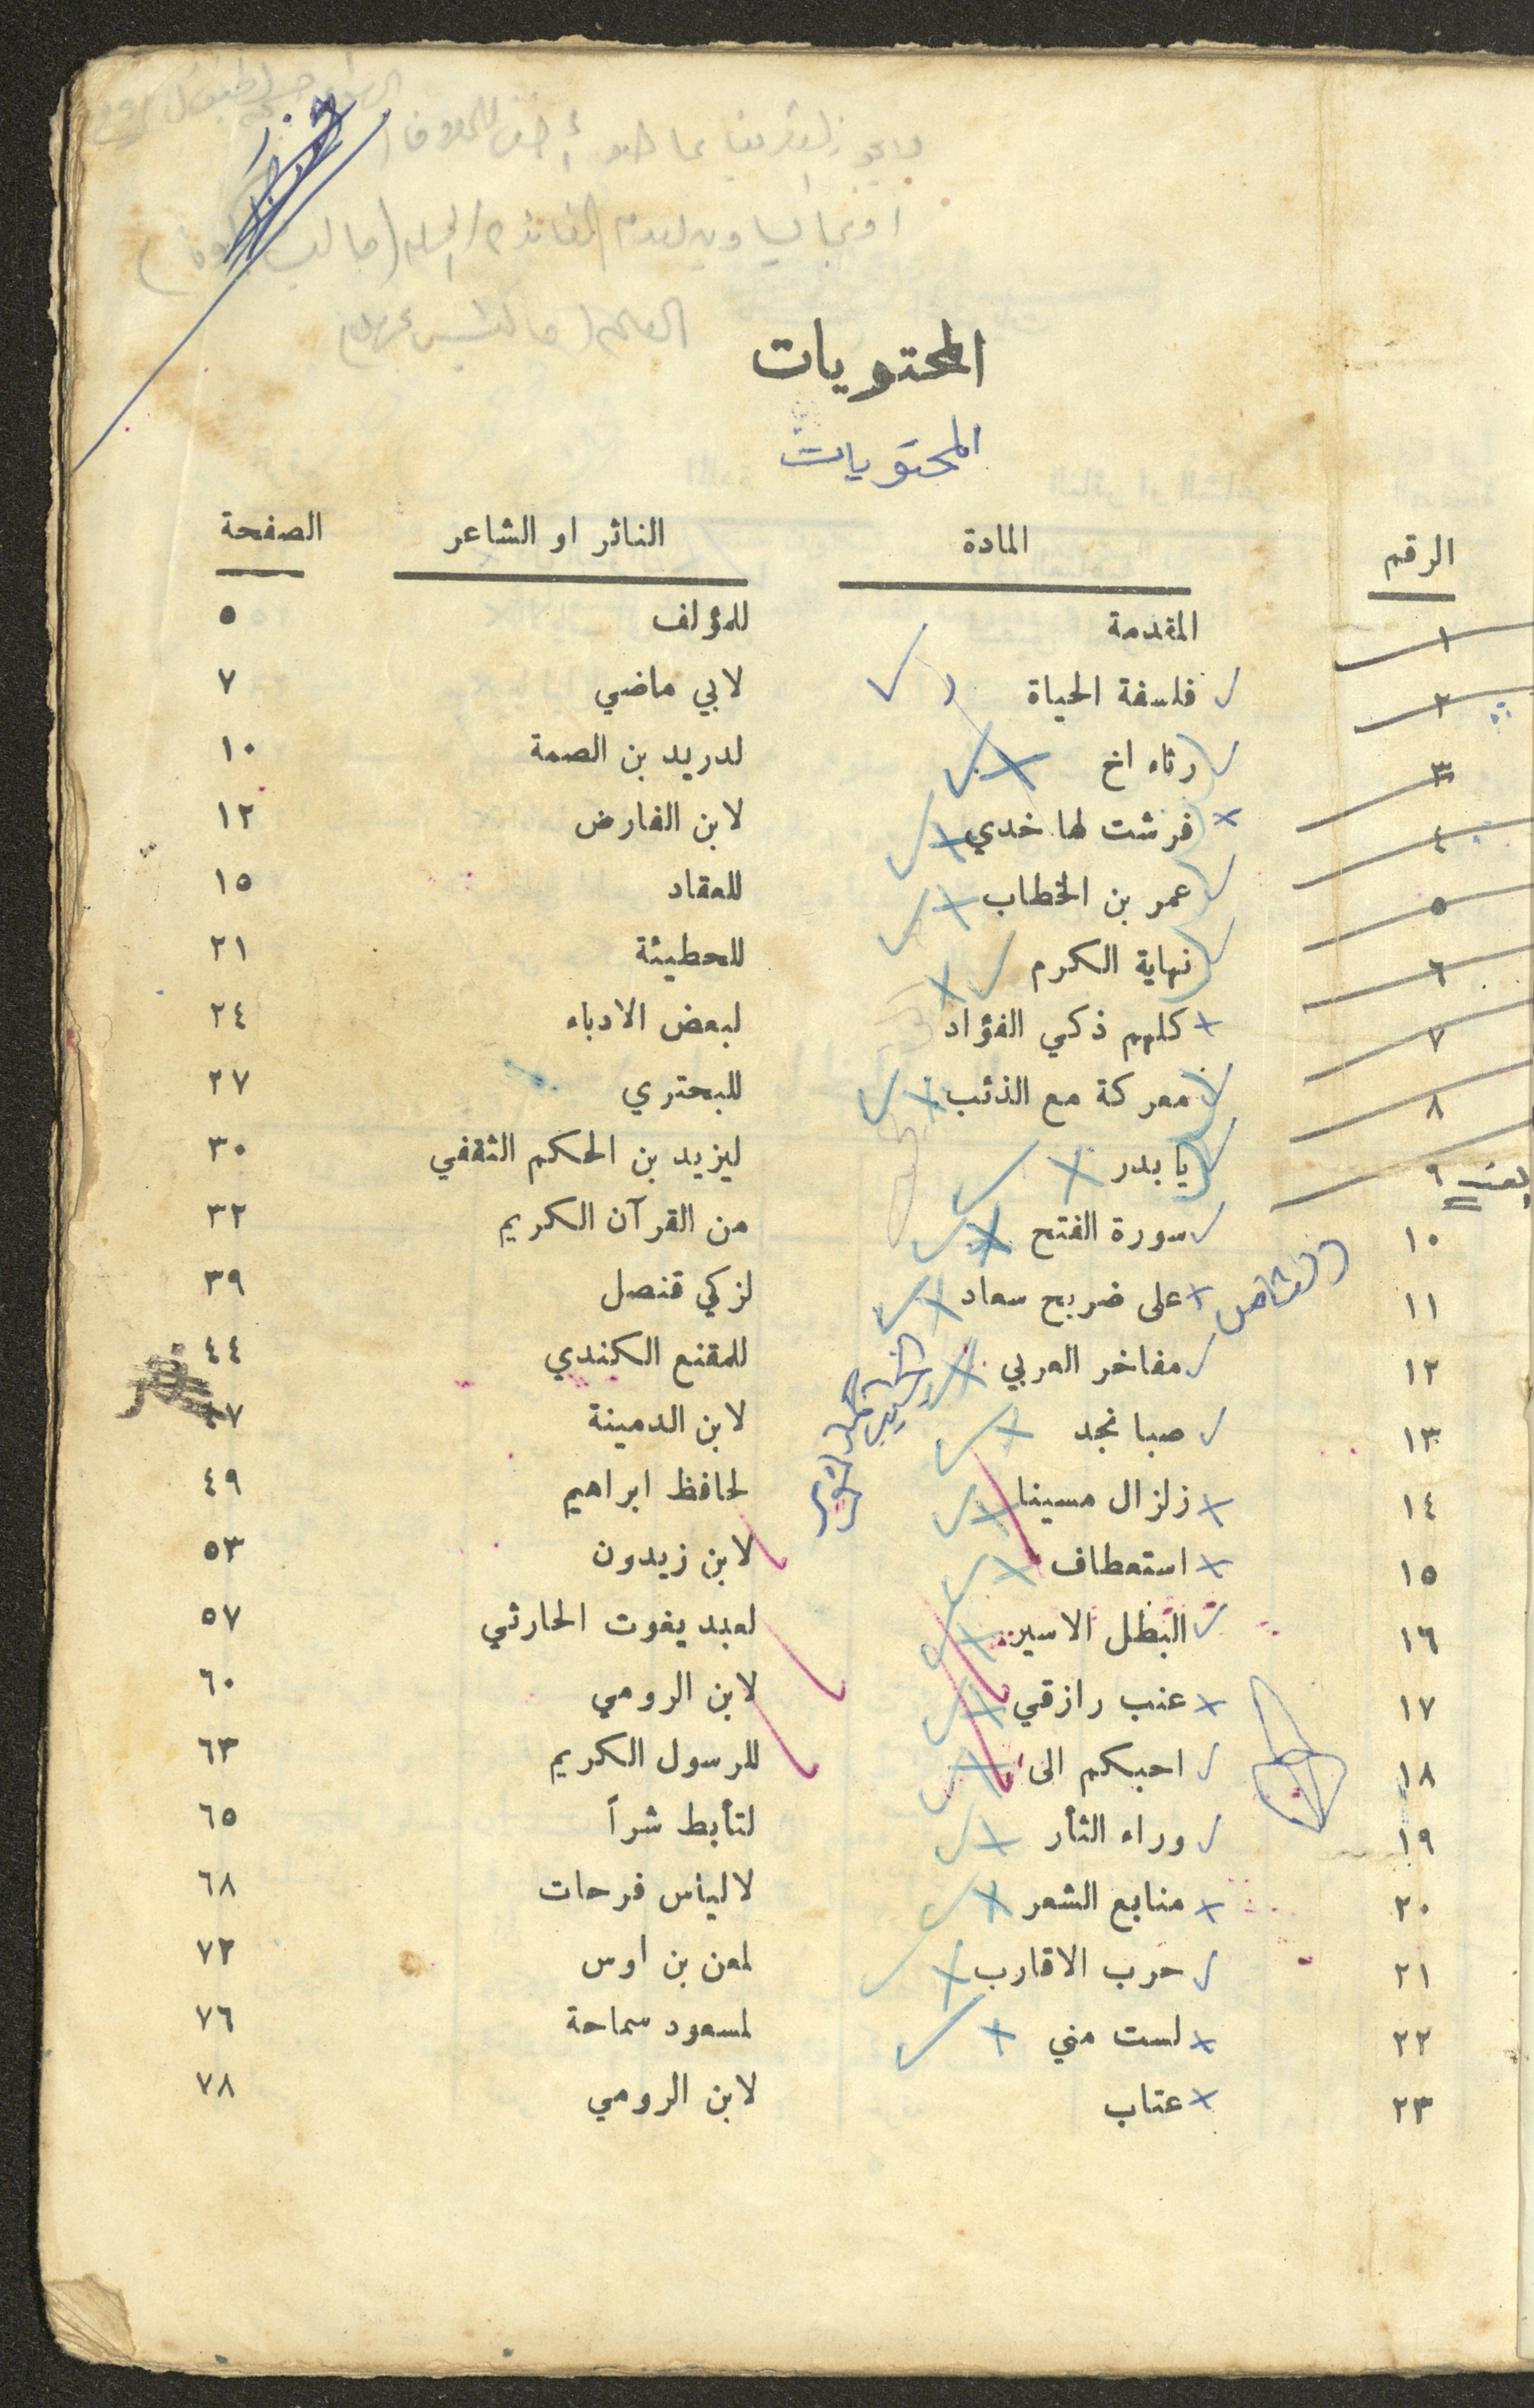 المحتويات
المحتويات
الرقم المادة الناثر او الشاعر الصفحة
١ المقدمة للمؤلف ٥
٢ فلسفة الحياة لابي ماضي ٧
٣ رثاء اخ لدريد بن الصمة ١٠
٤ فرشت لها خدي لابن الفارض ١٢
٥ عمر بن الخطاب للعقاد ١٥
٦ نهاية الكرم للحطيئة ٢١
٧ كلهم ذكي الفؤاد لبعض الادباء ٢٤
٨ معركة مع الذئب للبحتري ٢٧
٩ يا بدر ليزيد بن الحكم الثقفي ٣٠
١٠ سورة الفتح من القرآن الكريم ٣٢
١١ على ضريح سعاد لزكي قنصل ٣٩
١٢ مفاخر العربي للمقنع الكندي ٤٤
١٣ صبا نجد لابن الدمينة ٤٧
١٤ زلزال مسينا لحافظ ابراهيم ٤٩
١٥ استعطاف لابن زيدون ٥٣
١٦ البطل الاسير لعبد يغوت الحارثي ٥٧
١٧ عنب رازقي لابن الرومي ٦٠
١٨ احبكم الى للرسول الكريم ٦٣
١٩ وراء الثأر لتأبط شراً ٦٥
٢٠ منابع الشعر لالياس فرحات ٦٨
٢١ حرب الاقارب لمعن بن اوس ٧٢
٢٢ لست مني لمسعود سماحة ٧٦
٢٣ عتاب لابن الرومي ٧٨